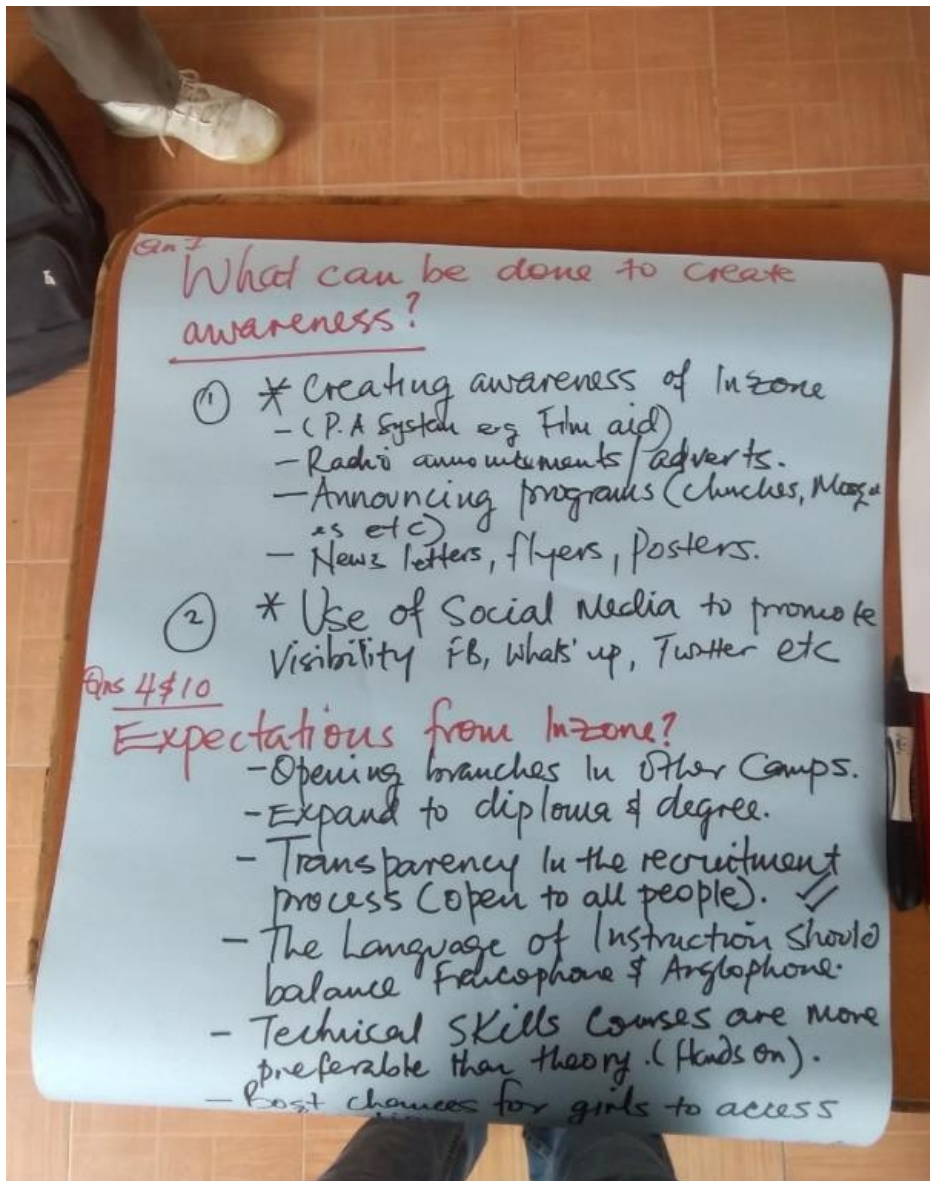 Qn 1
What can be done to create
awareness?
① * Creating awareness of Inzone
- (P.A Systam eg Film aid)
- Radio announcements/adverts.
- Announcing programs (churches, Mosqu
es etc)
- News letters, flyers, Posters.
② * Use of Social Media to promote
Visibility FB, Whats' up, Twitter etc
Qns 4 & 10
Expectations from Inzone?
- Opening branches In Other Camps.
- Expand to diploma & degree.
- Transparency In the recruitment
process (open to all people).
- The Language of Instruction should
balance Francophone & Anglophone.
- Technical Skills Courses are more
preferable than theory. (Hands on).
- Bost chances for girls to access